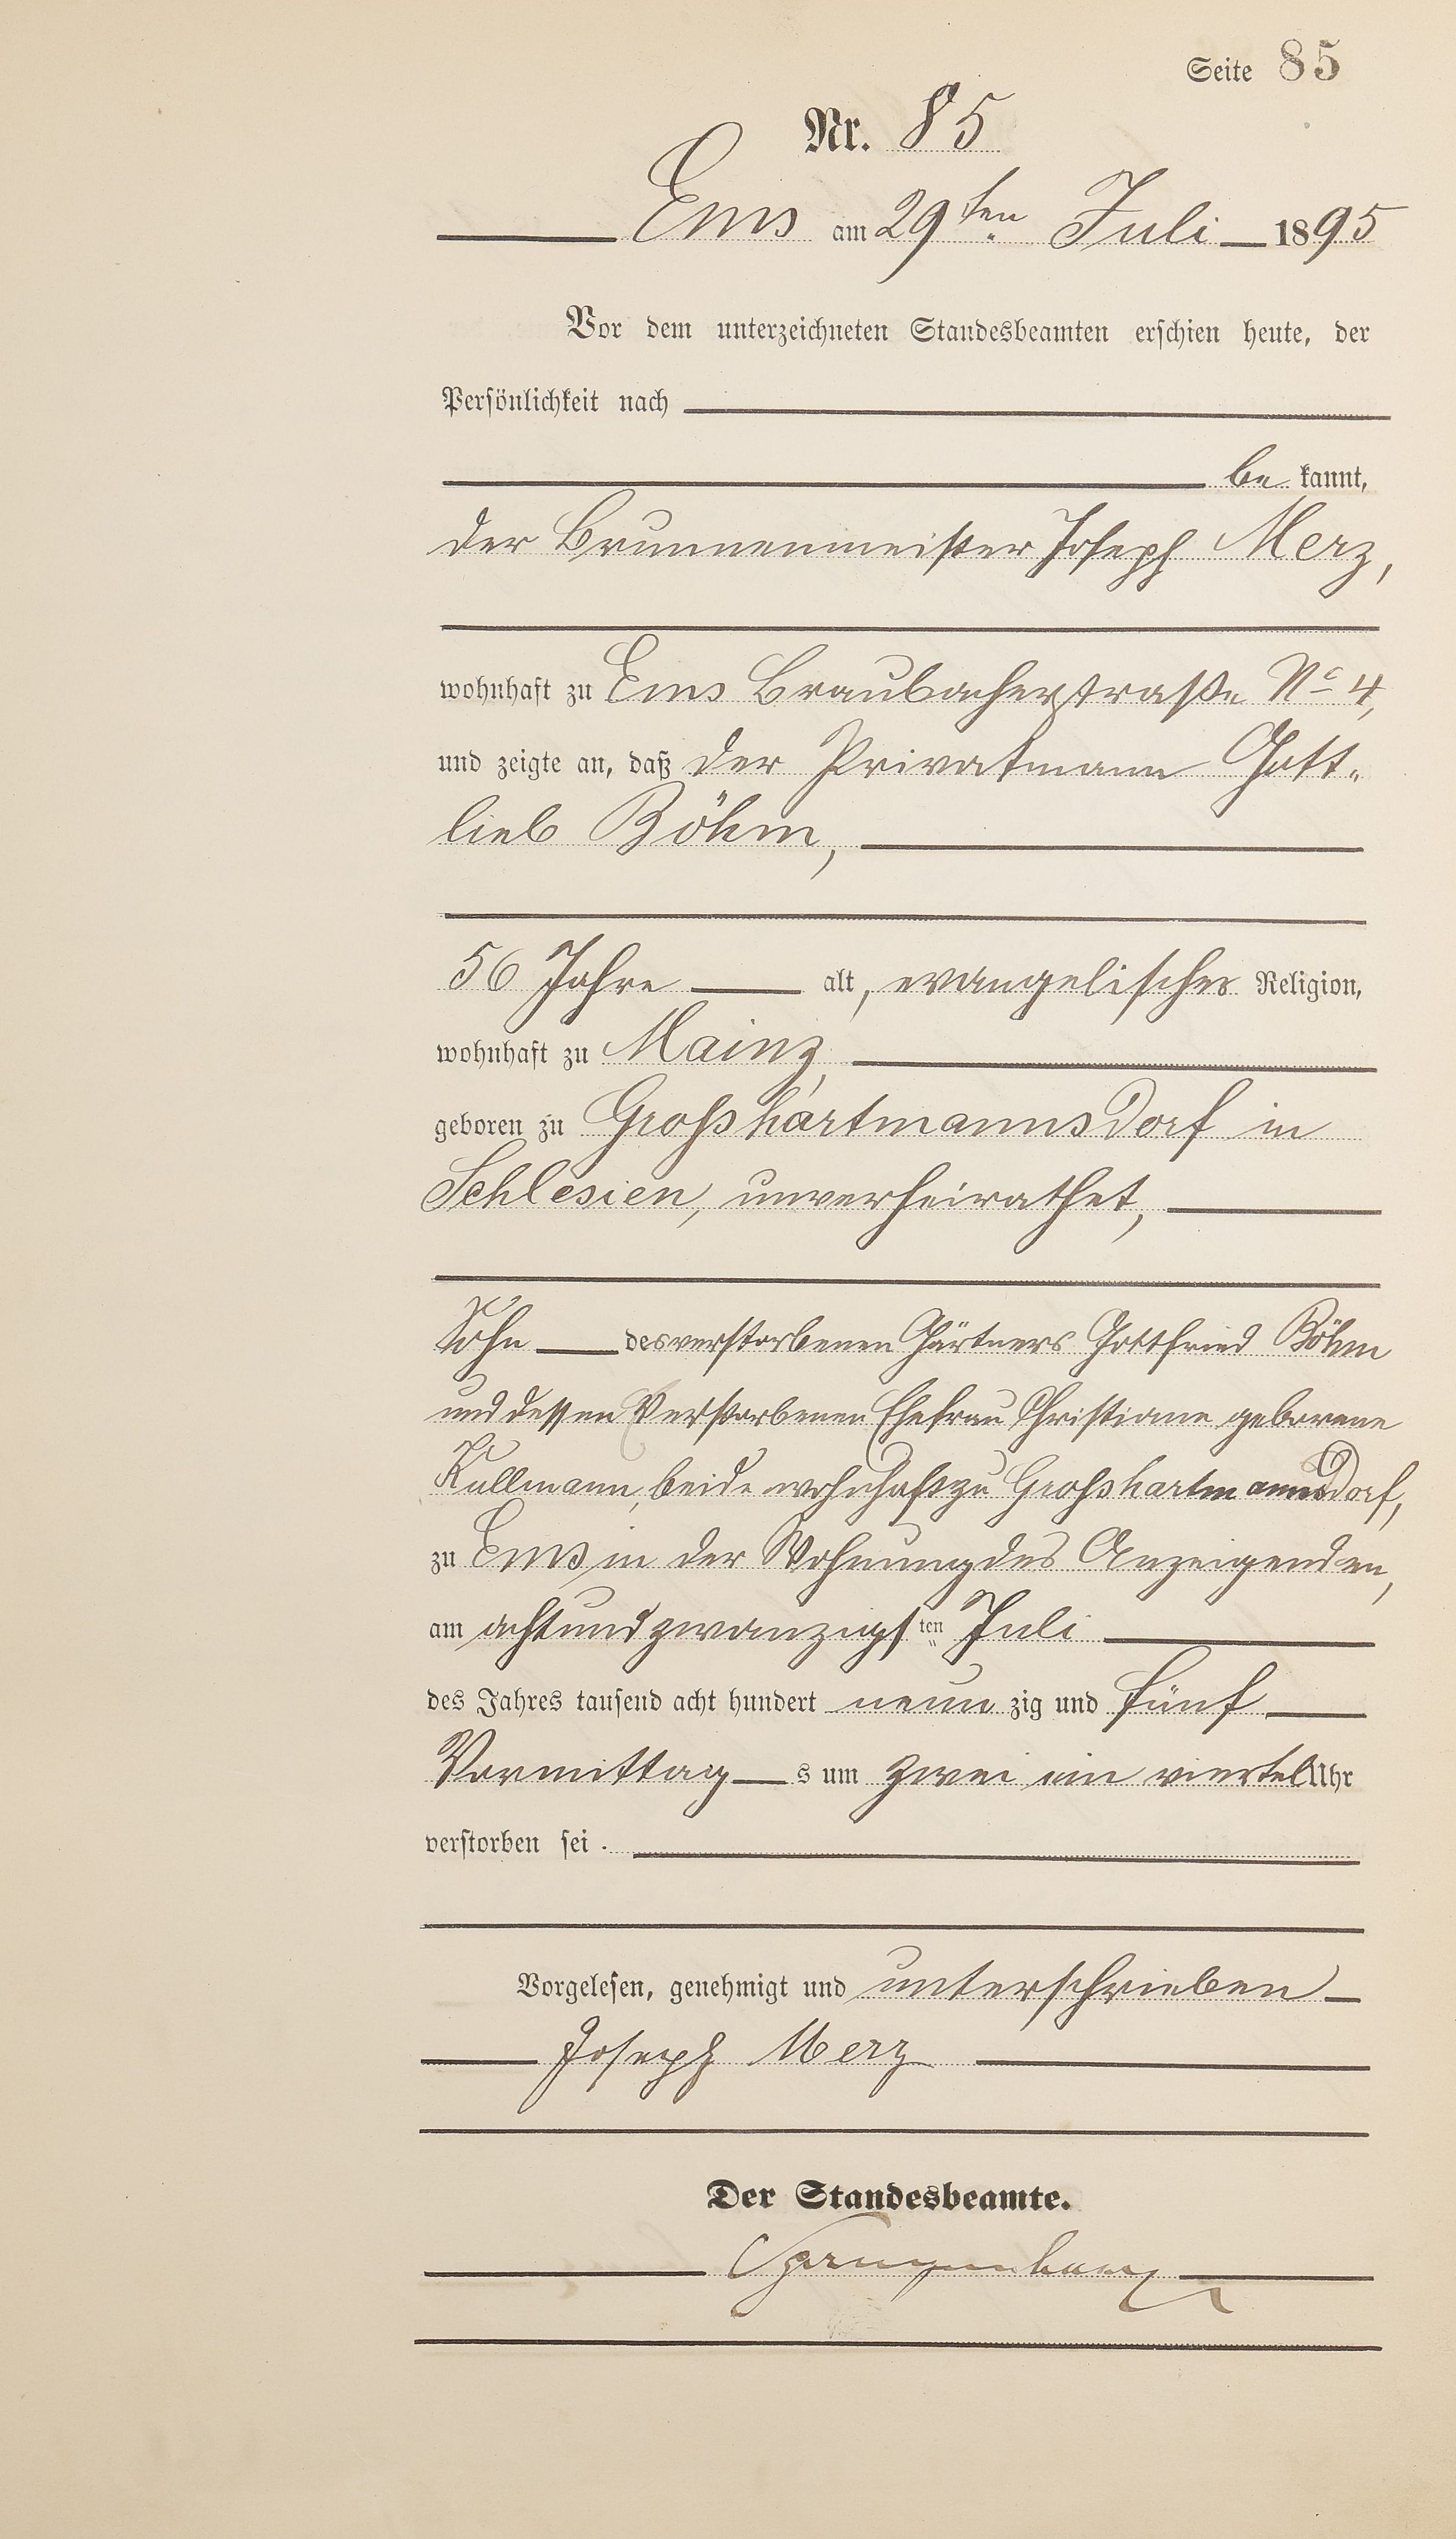 Seite 85
Nr. 85
Ems am 29ten Juli 1895
Vor dem unterzeichneten Standesbeamten erschien heute, der
Persönlichkeit nach
be kannt,
der Brunnenmeister Joseph Merz,
wohnhaft zu Ems Braubacherstraße No 4,
und zeigte an, daß der Privatmann Gott-
lieb Böhm,
56 Jahre alt, evangelischer Religion,
wohnhaft zu Mainz,
geboren zu Großhartmannsdorf in
Schlesien, unverheirathet,
Sohn des verstorbenen Gärtners Gottfried Böhm
und dessen verstorbenen Ehefrau Christiane geborene
Kullmann, beide wohnhaft zu Großhartmannsdorf,
zu Ems in der Wohnung des Anzeigenden,
am achtundzwanzigsten Juli
des Jahres tausend acht hundert neun zig und fünf
Vormittag s um zwei ein viertel Uhr
verstorben sei.
Vorgelesen, genehmigt und unterschrieben
Joseph Merz
Der Standesbeamte.